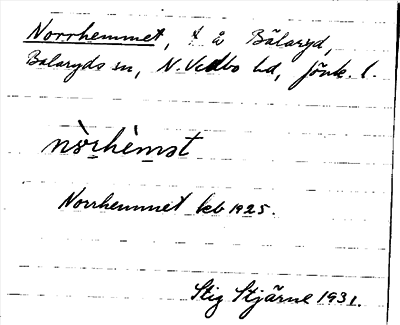 Norrhemmet, t å Bälaryd,
Bälaryds sn, N. Vedbo hd, Jönk. l.
nòrhèmət
Norrhemmet kb 1925.
Stig Stjärne 1931.